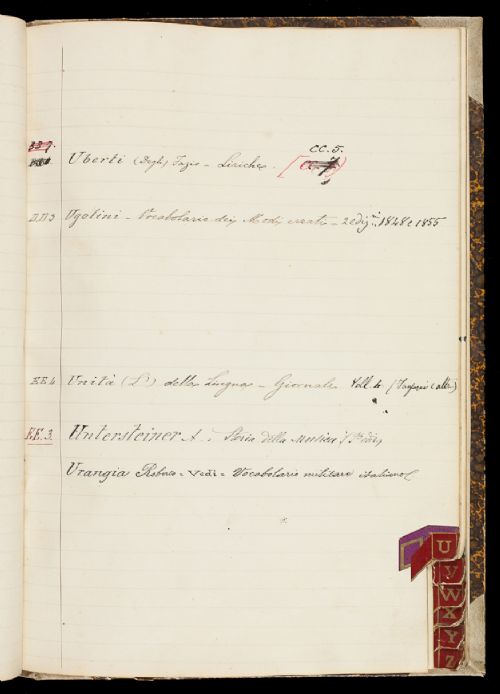 CC.5.
Uberti (Degli) Fazio - Liriche.
DD 3 Ugolini - Vocabolario di Modi errati - 2 ediz.ni 1848 e 1855
EE 4 Unità (L') della Lingua - Giornale Voll. 4
EE. 3. Untersteiner A. : Storia della Musica
Urangia Roberto = Vedi = Vocabolario militare italiano
U
y
W
X
Y
Z